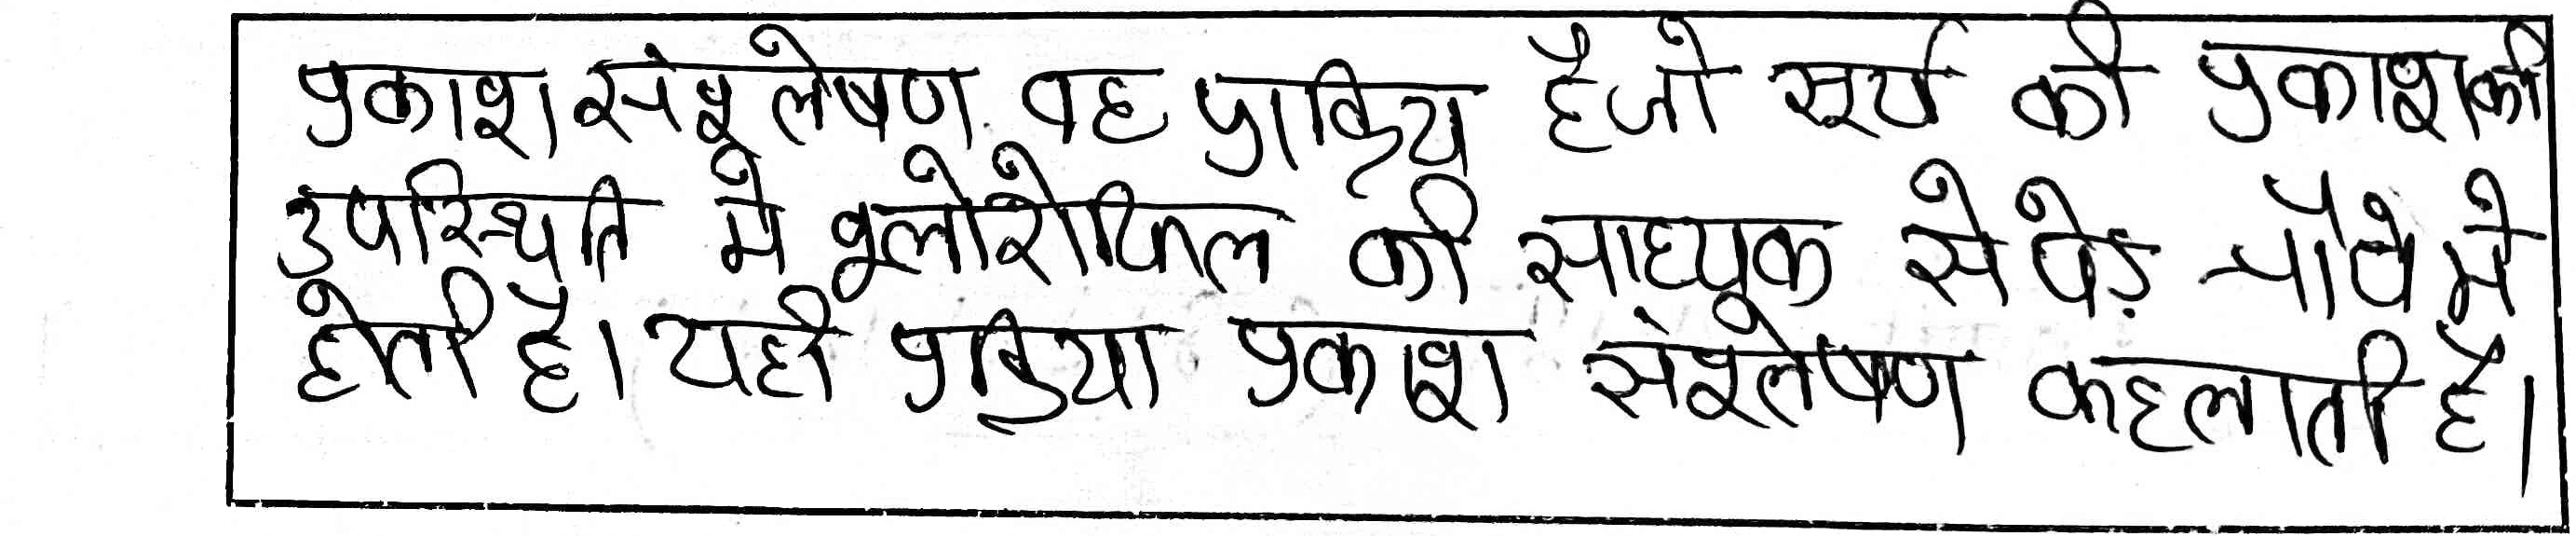 प्रकाश संश्लेषण वह प्राक्रिय है जो सूर्य की प्रकाश की
उपस्थिति मे क्लोरोफिल की साध्यक से पेड़ पौधे मे
होती है। यही प्रक्रिया प्रकाश संश्लेषण कहलाती है।